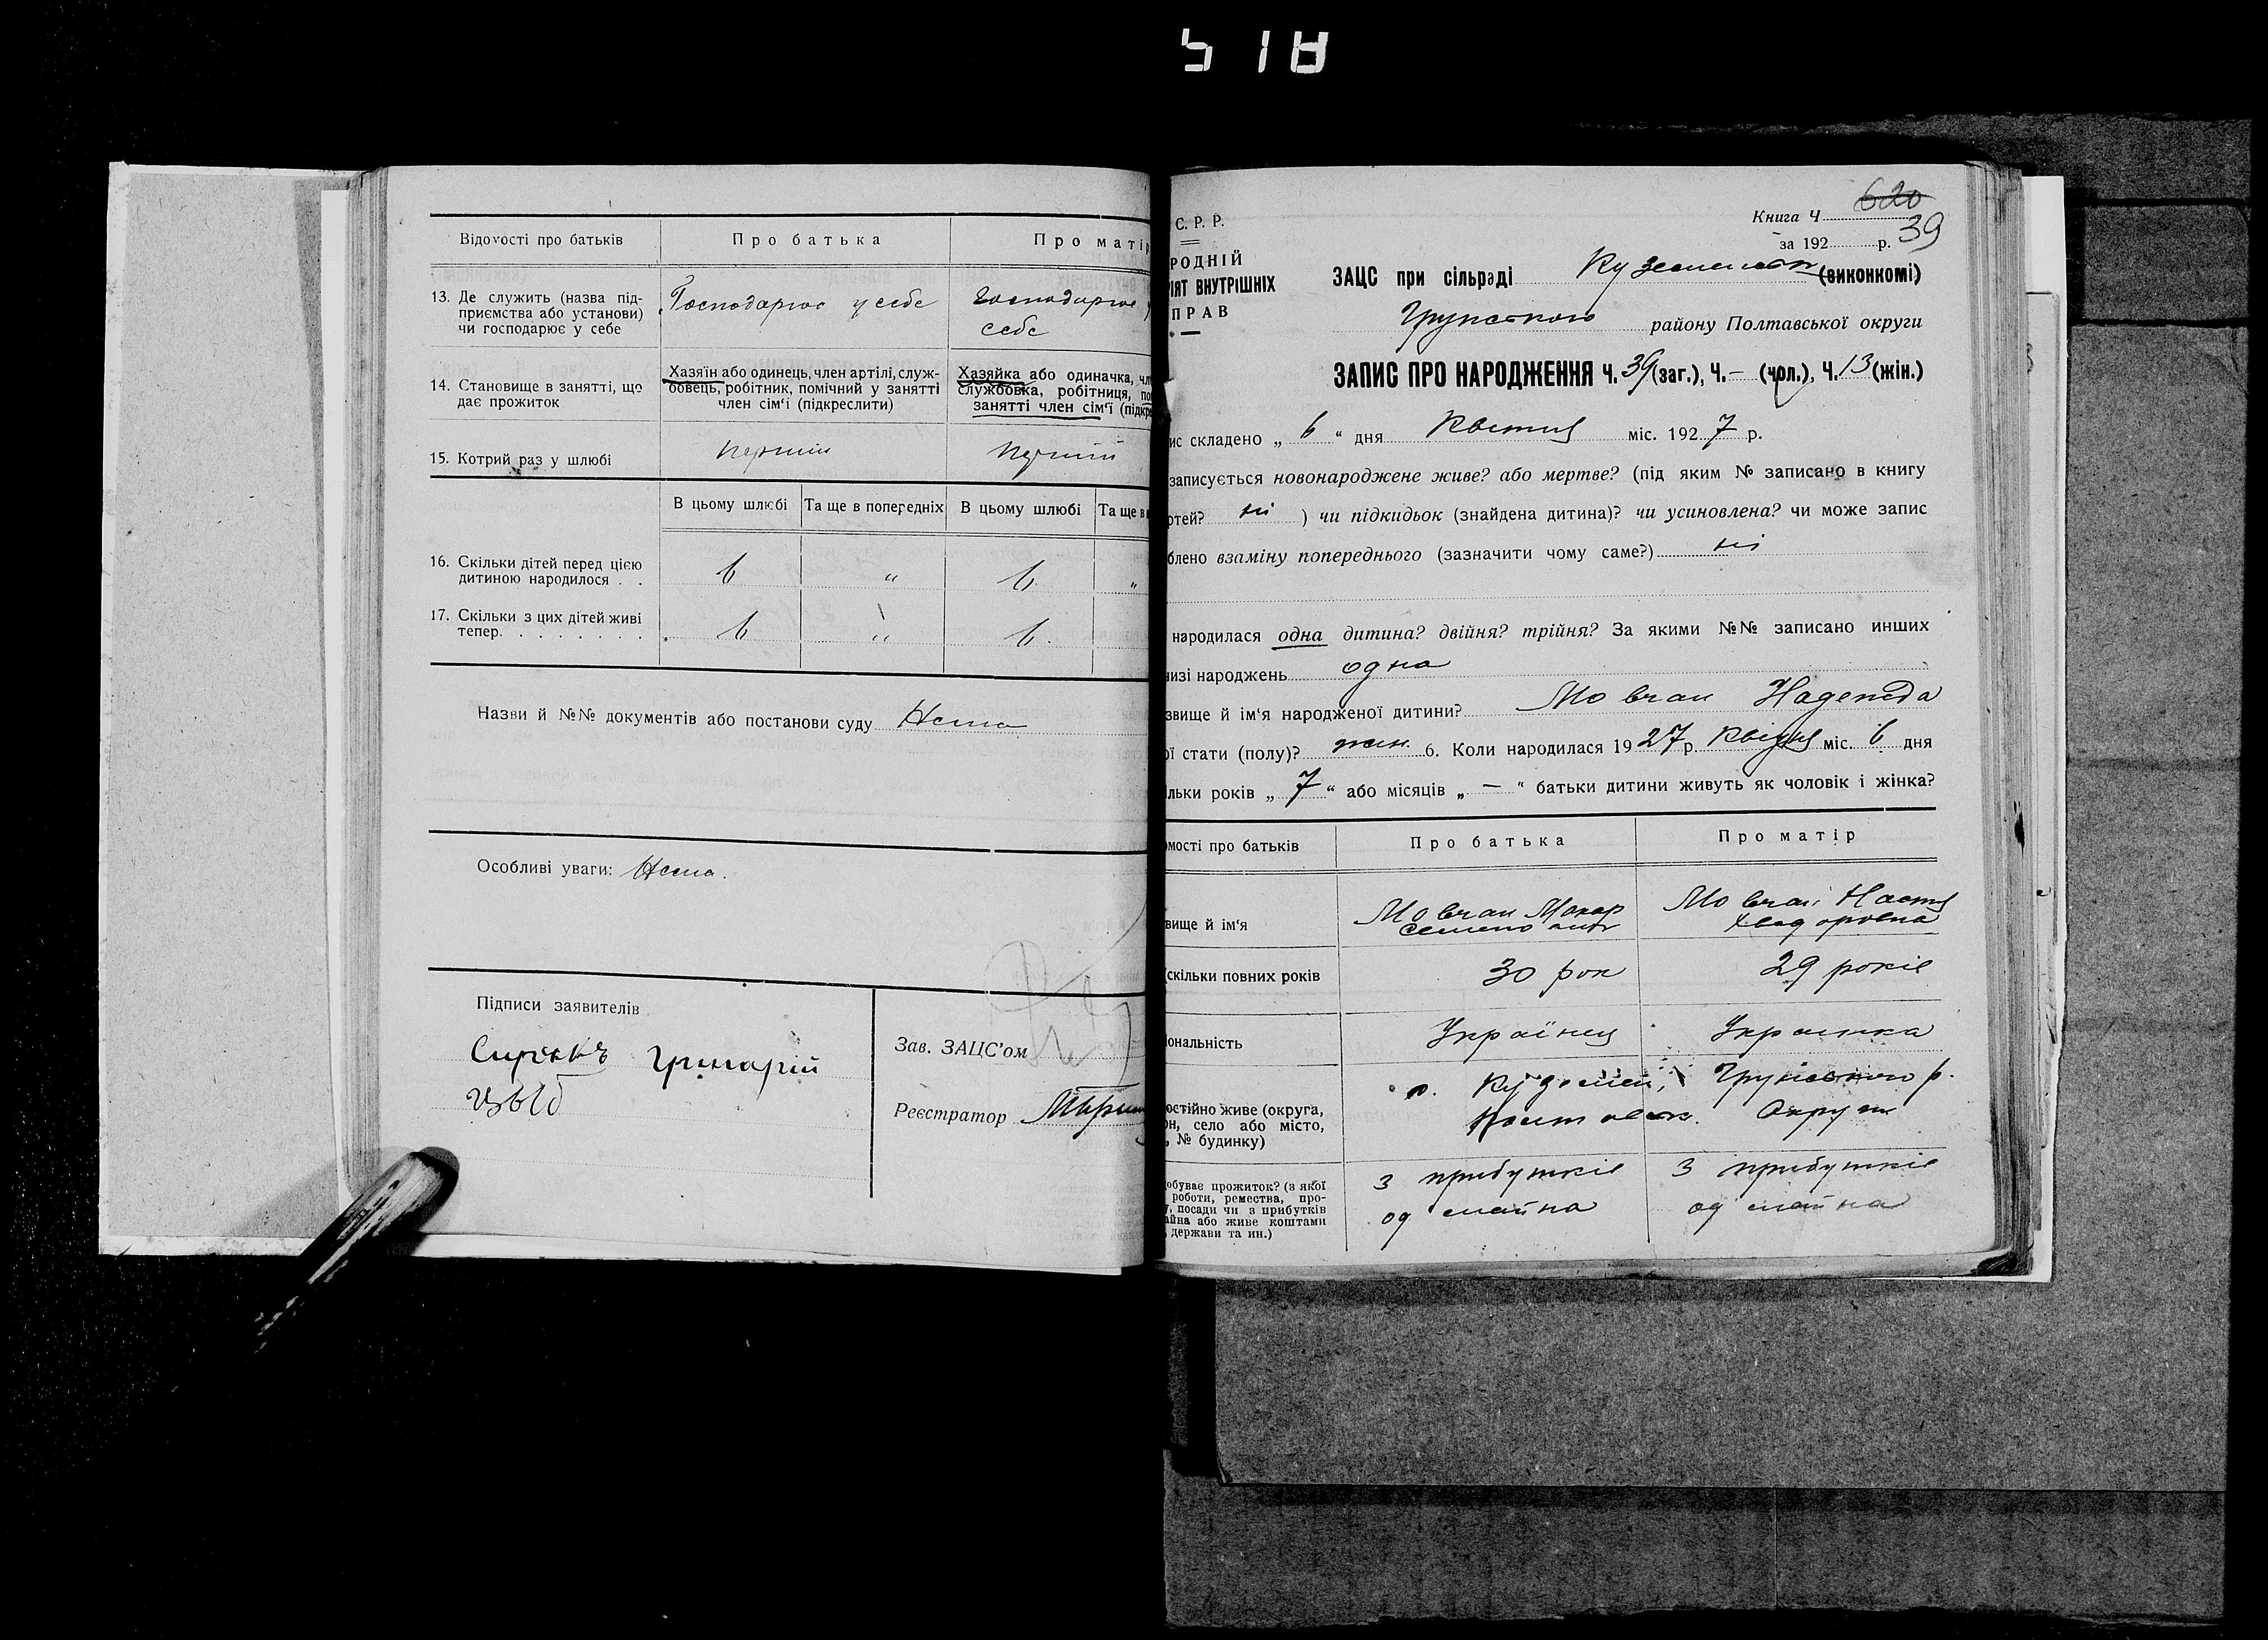 518
Відомості про батьків Про батька Про матір
13. Де служить (назва під-
приємства або установи)
чи господарює у себе
Господарює у себе
Господарює у
себе
14. Становище в занятті, що
дає прожиток
Хазяїн або одинець, член артілі, служ-
бовець, робітник, помічний у занятті
член сім'ї (підкреслити)
Хазяйка або одиначка, чл
службовка, робітниця, по
занятті член сім'ї (підкре
15. Котрий раз у шлюбі
перший
перший
В цьому шлюбі Та ще в попередніх В цьому шлюбі Та ще в
16. Скільки дітей перед цією
дитиною народилося . .
6 „ 6 „
17. Скільки з цих дітей живі
тепер. . . . . . . .
6 „ 6.
Назви й №№ документів або постанови суду Нема
Особливі уваги: Нема.
Підписи заявителів
Григорій
Зав. ЗАЦС'ом
Реєстратор
620
Книга Ч
39
за 192 р.
С. Р. Р.
РОДНІЙ
ІЯТ ВНУТРІШНІХ
ПРАВ
ЗАЦС при сільраді (виконкомі)
Грунського району Полтавської округи
ЗАПИС ПРО НАРОДЖЕННЯ Ч. 39 (заг.), Ч. – (чол.), Ч. 13 (жін.)
ис складено „ 6 “ дня Квітня міс. 1927 р.
записується новонароджене живе? або мертве? (під яким № записано в книгу
ртей? ні ) чи підкидьок (знайдена дитина)? чи усиновлена? чи може запис
блено взаміну попереднього (зазначити чому саме?) ні
народилася одна дитина? двійня? трійня? За якими №№ записано инших
низі народжень одна
звище й ім'я народженої дитини? Мовчан Надежда
ої стати (полу)? жін. 6. Коли народилася 1927 р. Квітня міс. 6 дня
ільки років „ 7 “ або місяців „ — “ батьки дитини живуть як чоловік і жінка?
омості про батьків Про батька Про матір
вище й ім'я
Мовчан Макар
Семенович
Мовчан Настя
Хведоровна
скільки повних років
30 рок
29 років
іональність
Українец
Украинка
остійно живе (округа,
он, село або місто,
, № будинку)
с. Куземен, Грунського р.
Полтавск. Округи
обуває прожиток? (з якої
роботи, ремества, про-
у, посади чи з прибутків
айна або живе коштами
, держави та ин.)
з прибутків
од майна
з прибутків
од майна